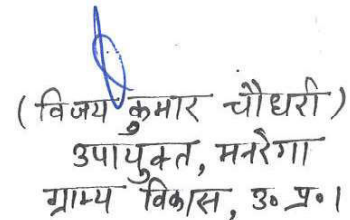 (विजय कुमार चौधरी)
उपायुक्त, मनरेगा
ग्राम्य विकास, उ० प्र०।